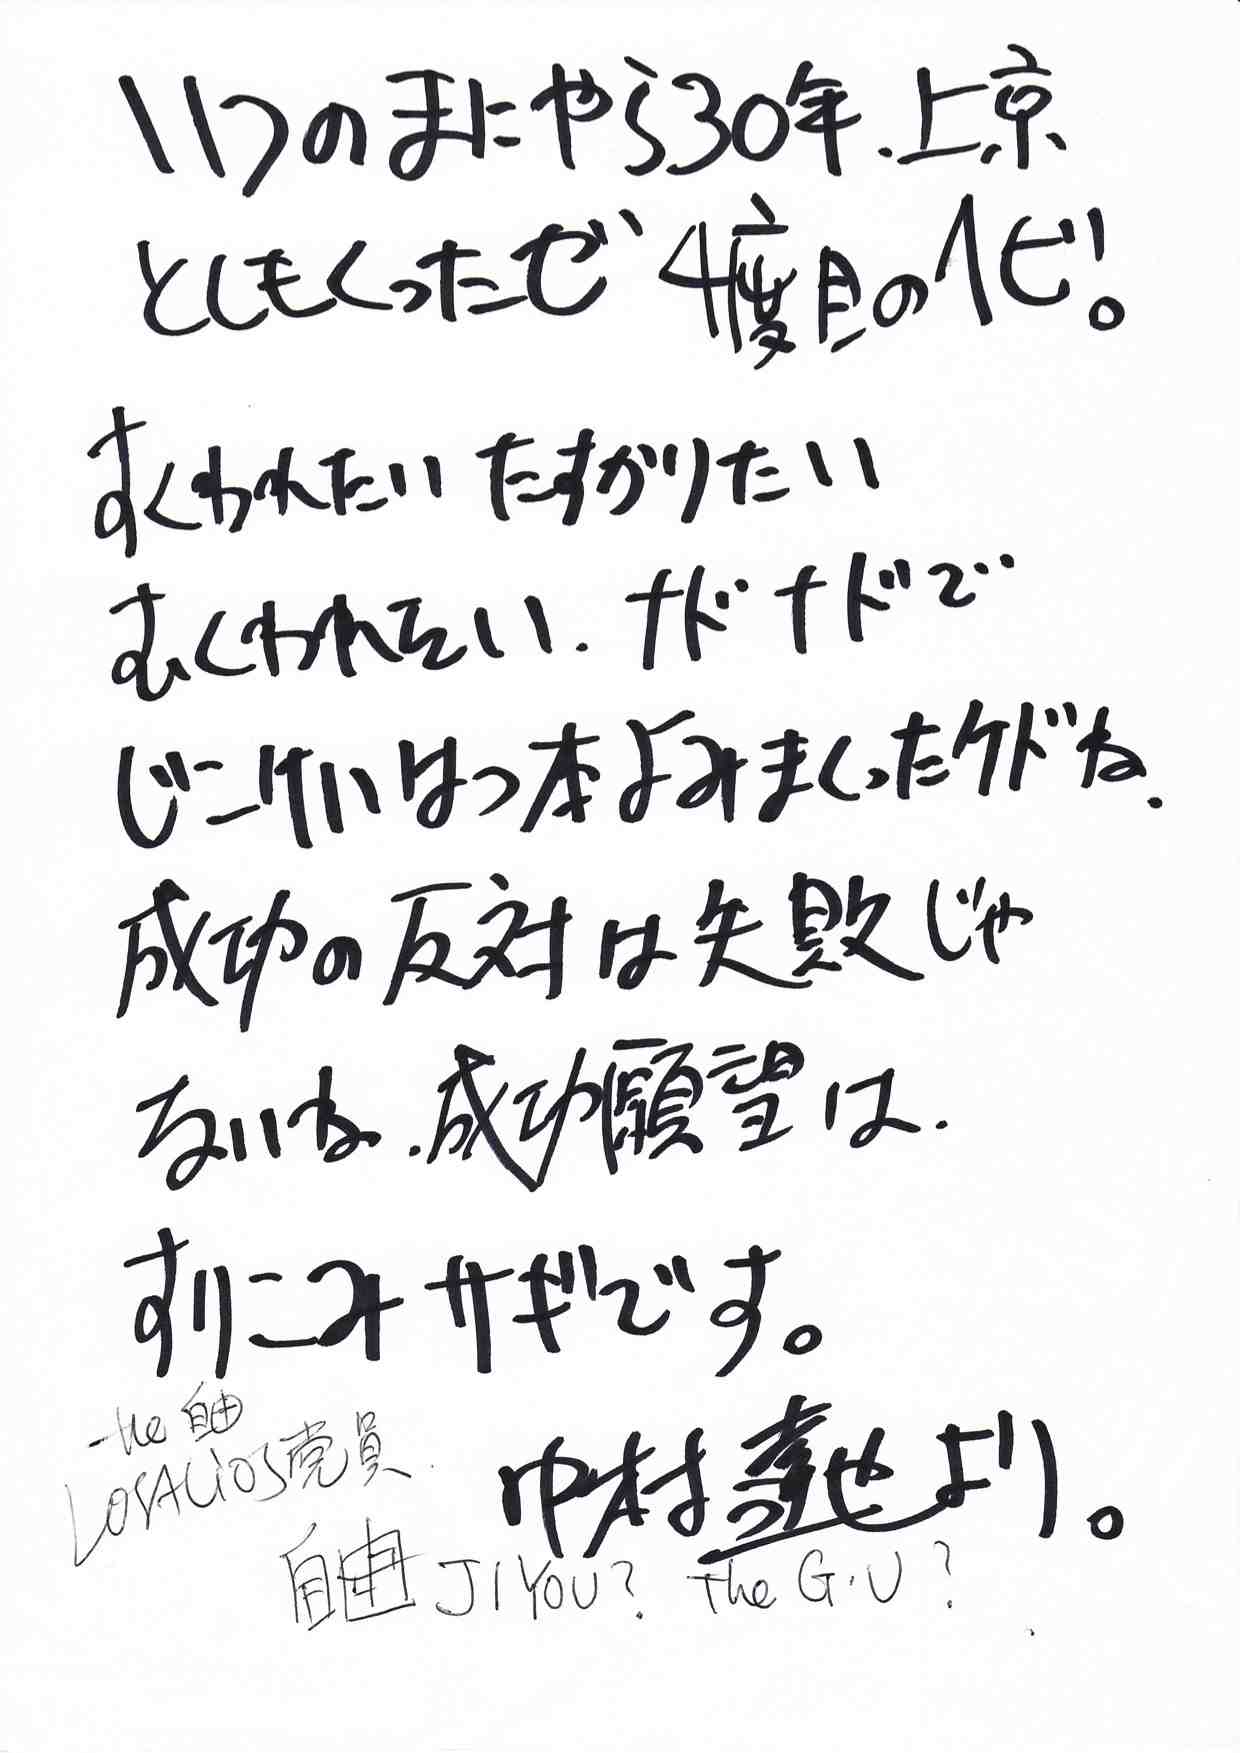 いつのまにやら30年.上京
としもくったぜ 4度目のヘビ!。
すくわれたい たすかりたい
むくわれない. ナドナドで
じこけいはつ本よみまくったケドね.
成功の反対は失敗じゃ
ないね.成功願望は.
すりこみサギです。
the 自由
LOSALIOS党員.
中村達也より。
自由 JIYOU? The G.U?